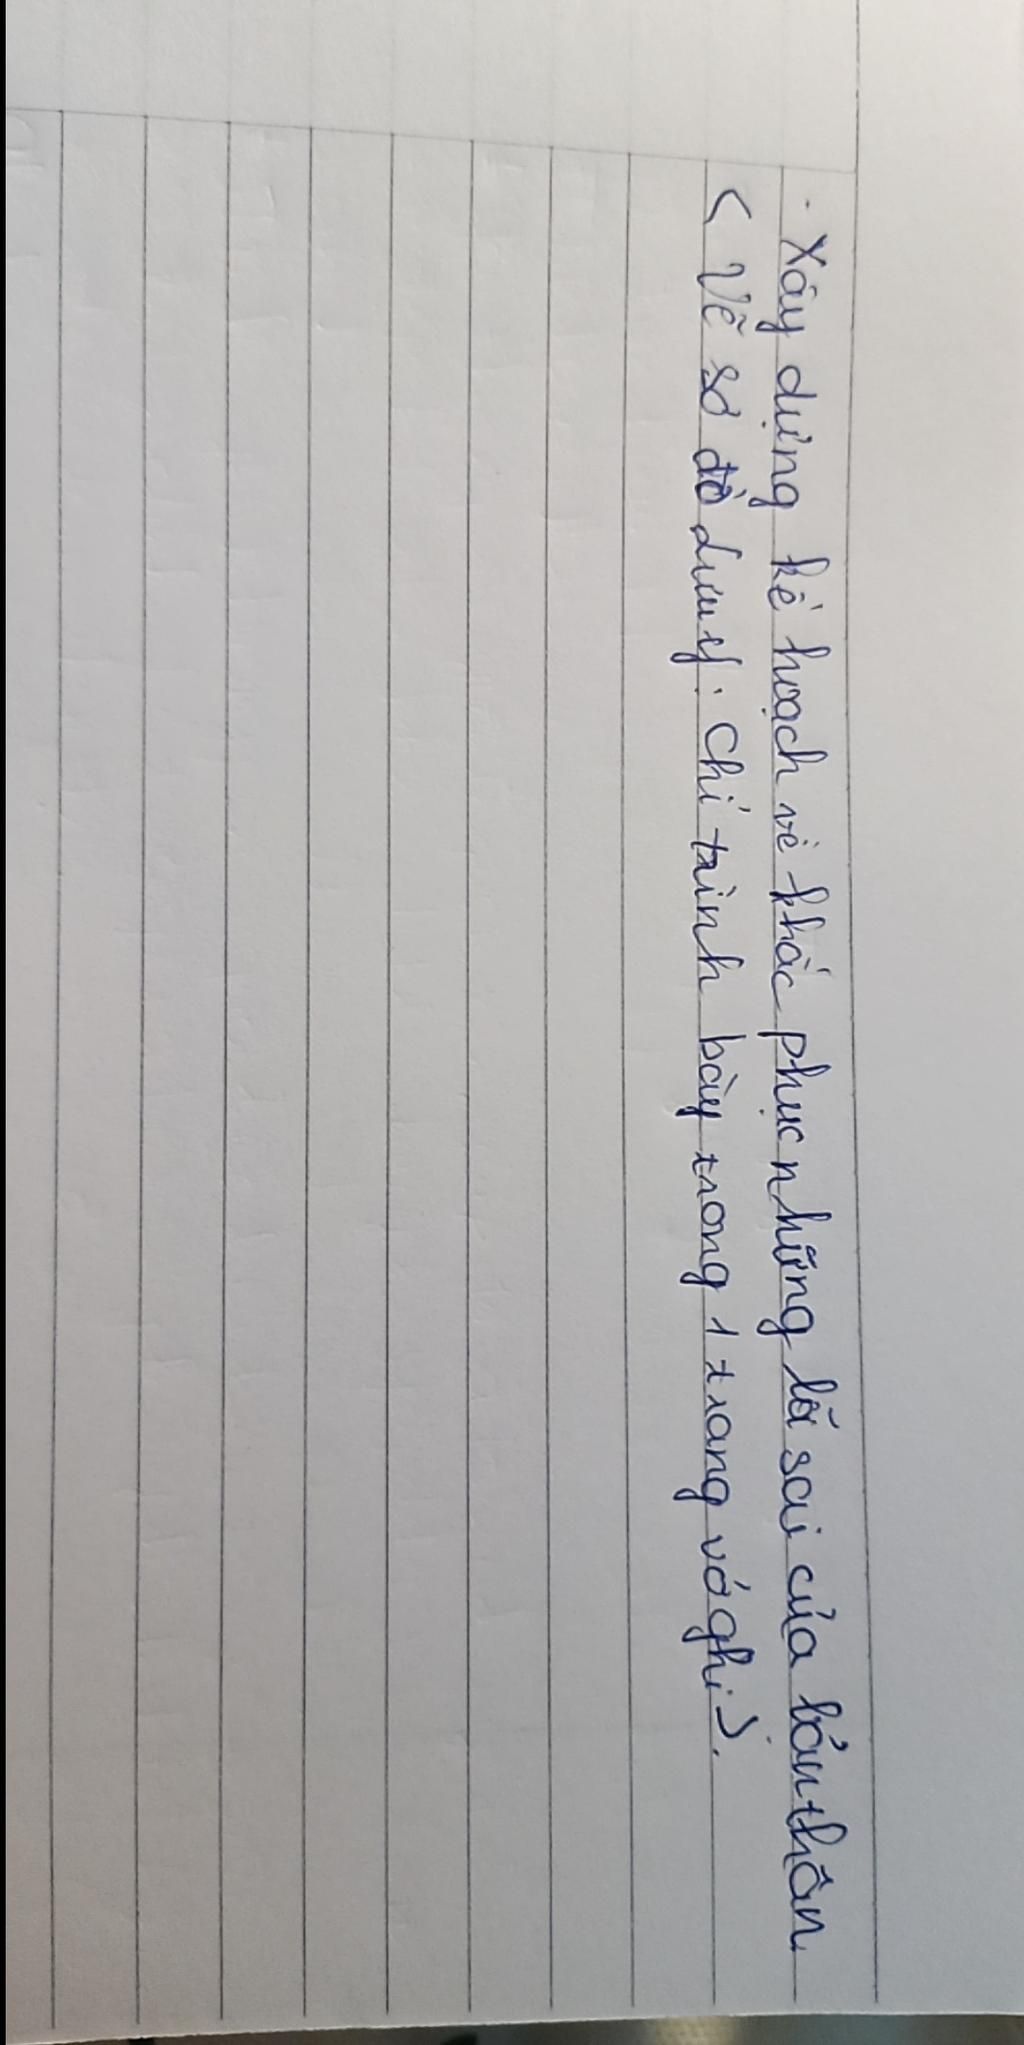 . Xây dựng kế hoạch về khắc phục những lỗ sai của bản thân
( Vẽ sơ đồ duy: chỉ trình bày trong 1 trang vở ghi).